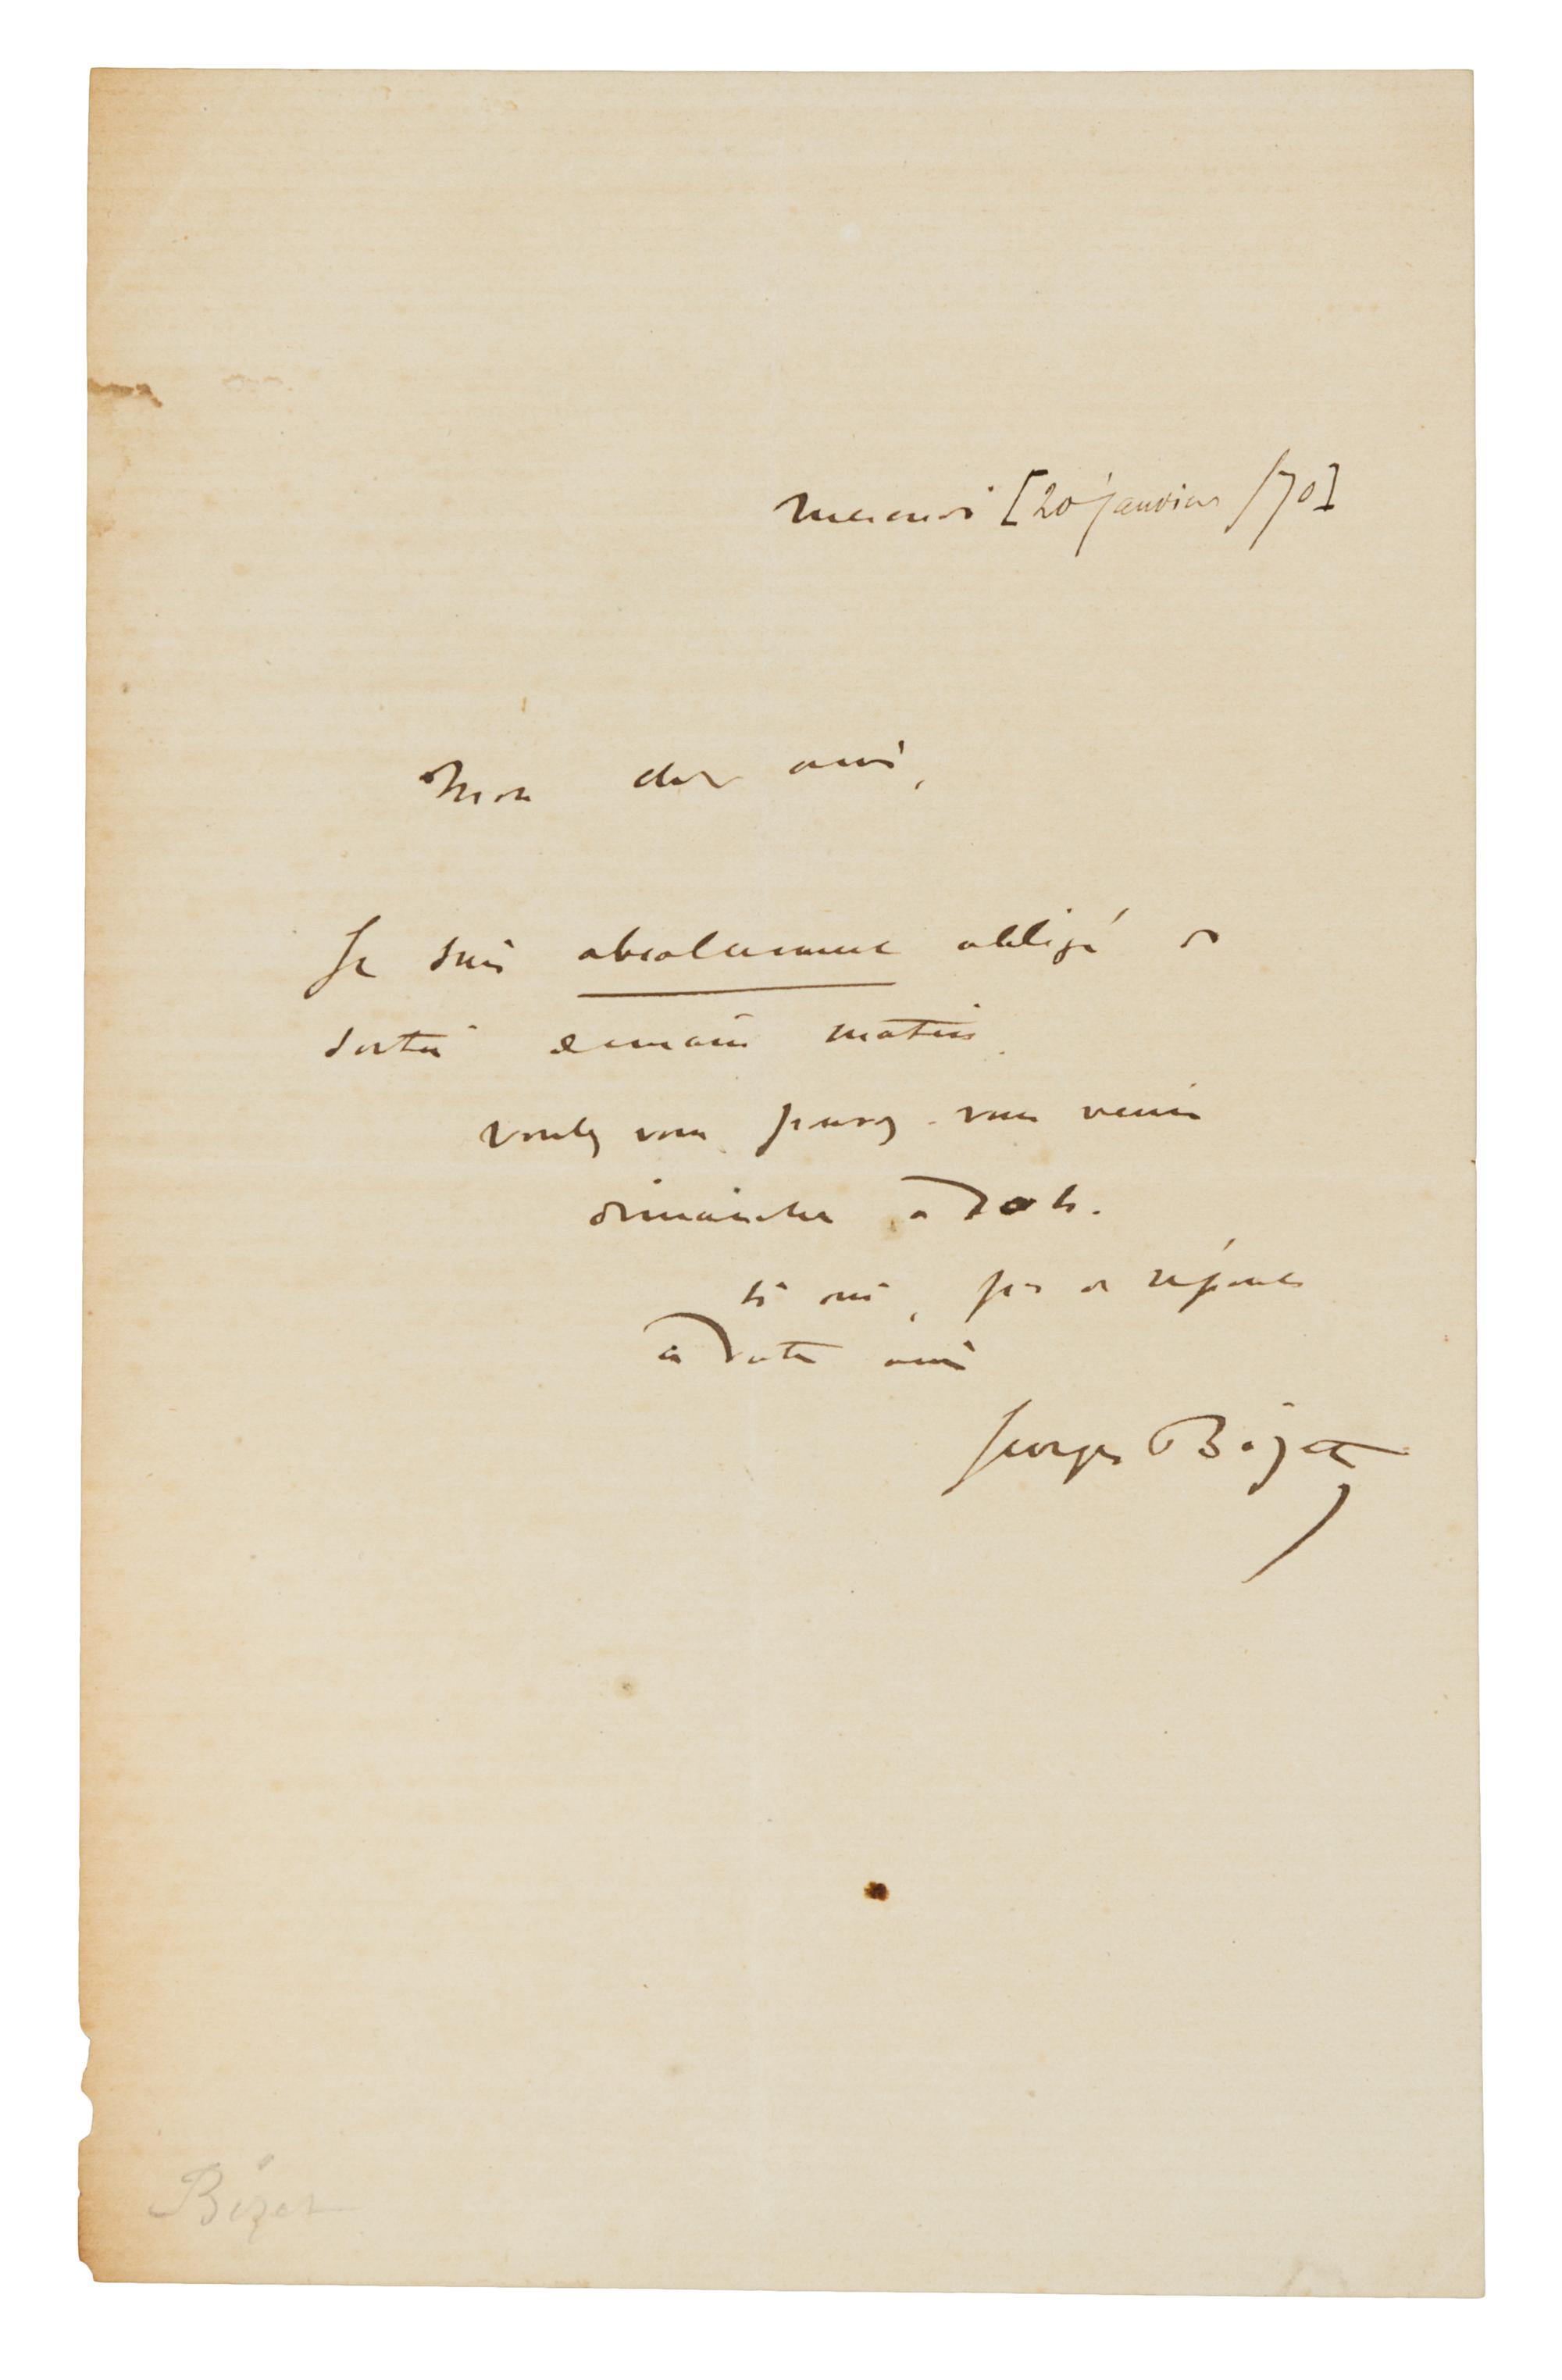 mercredi [20 janvier /70]
Mon cher ami,
Je suis absolument obligé de
sortir demain matin.
voulez vous, pouvez-vous venir
dimanche à 10 h.
si oui, pas de réponse
à votre ami
Georges Bizet
Bizet